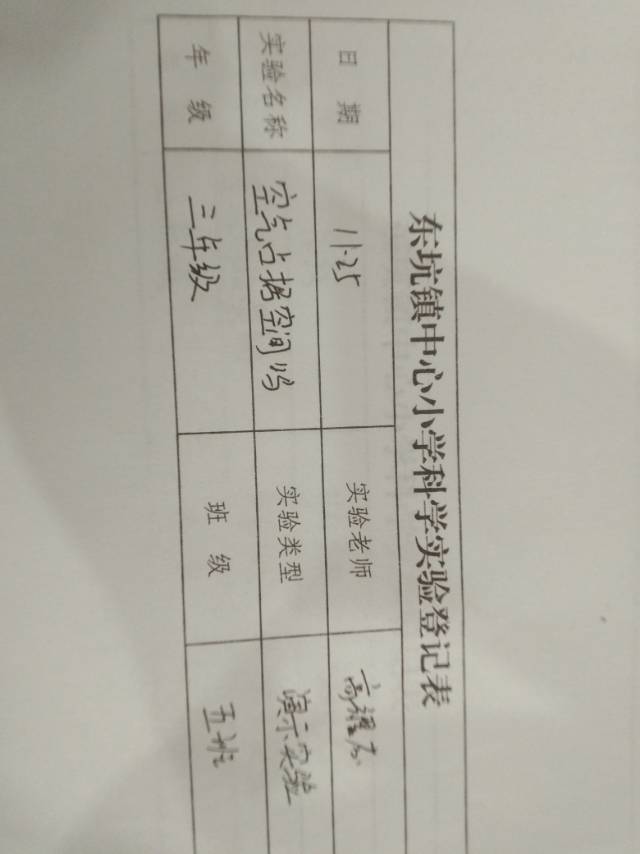 东坑镇中心小学科学实验登记表
日 期 11.25 实验老师 高
实验名称 空气占据空间吗 实验类型 演示实验
年 级 三年级 班 级 五班